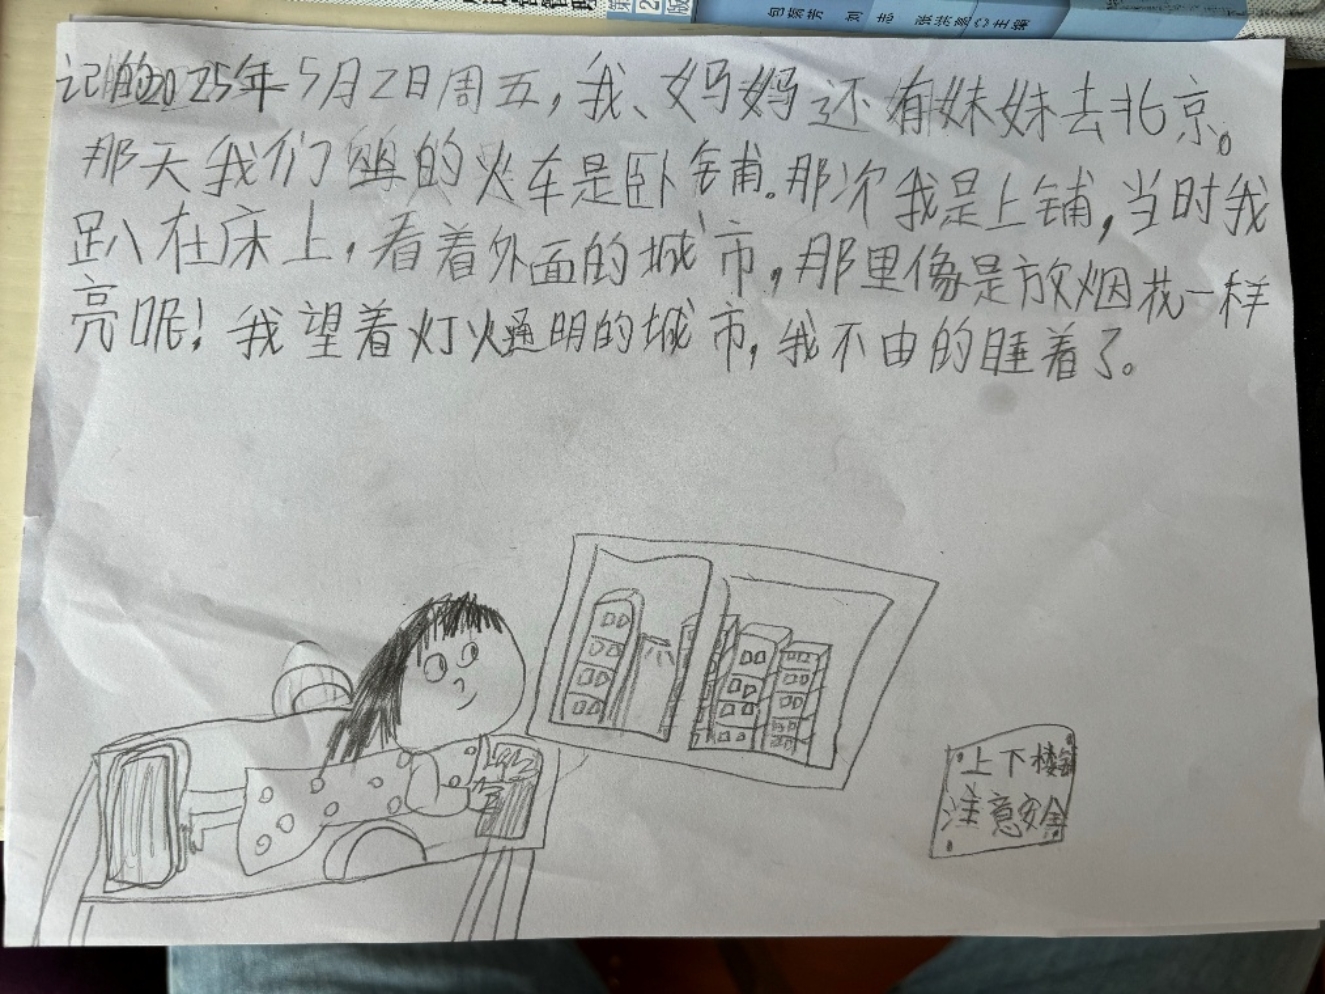 包 芳 刘 志 张洪 主编
记的2025年5月2日周五，我、妈妈还有妹妹去北京。
那天我们坐的火车是卧铺。那次我是上铺，当时我
趴在床上，看着外面的城市，那里像是放烟花一样
亮呢！我望着灯火通明的城市，我不由的睡着了。
上下楼
注意安全